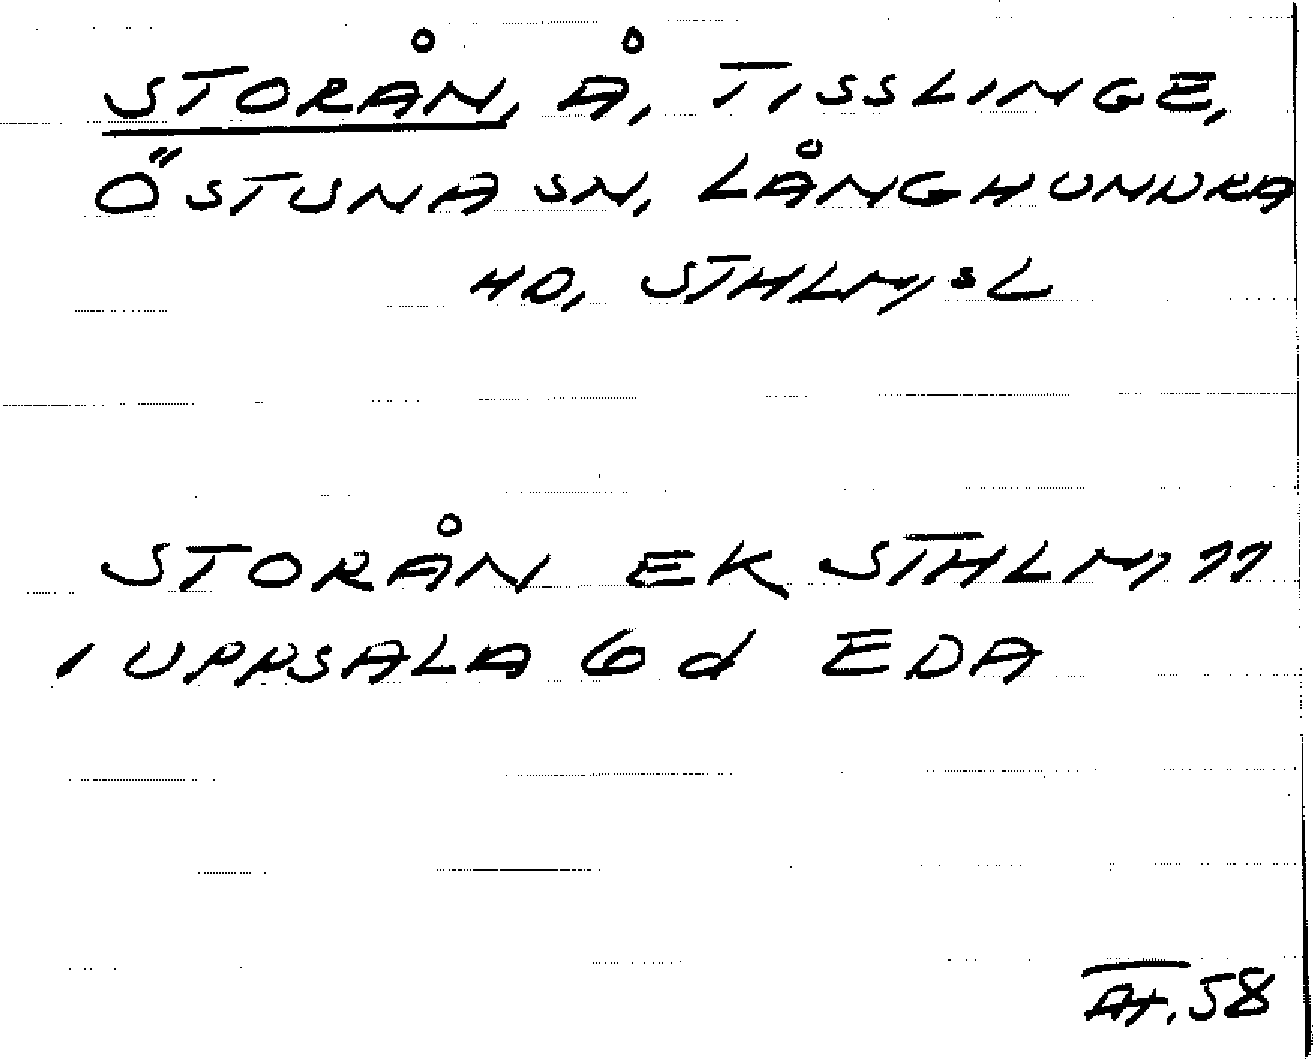 STORÅN, Å, TISSLINGE,
ÖSTUNA SN, LÅNGHUNDRA
HD, STHLM:S L
STORÅN EK STHLM 77
, UPPSALA 6 d EDA
58